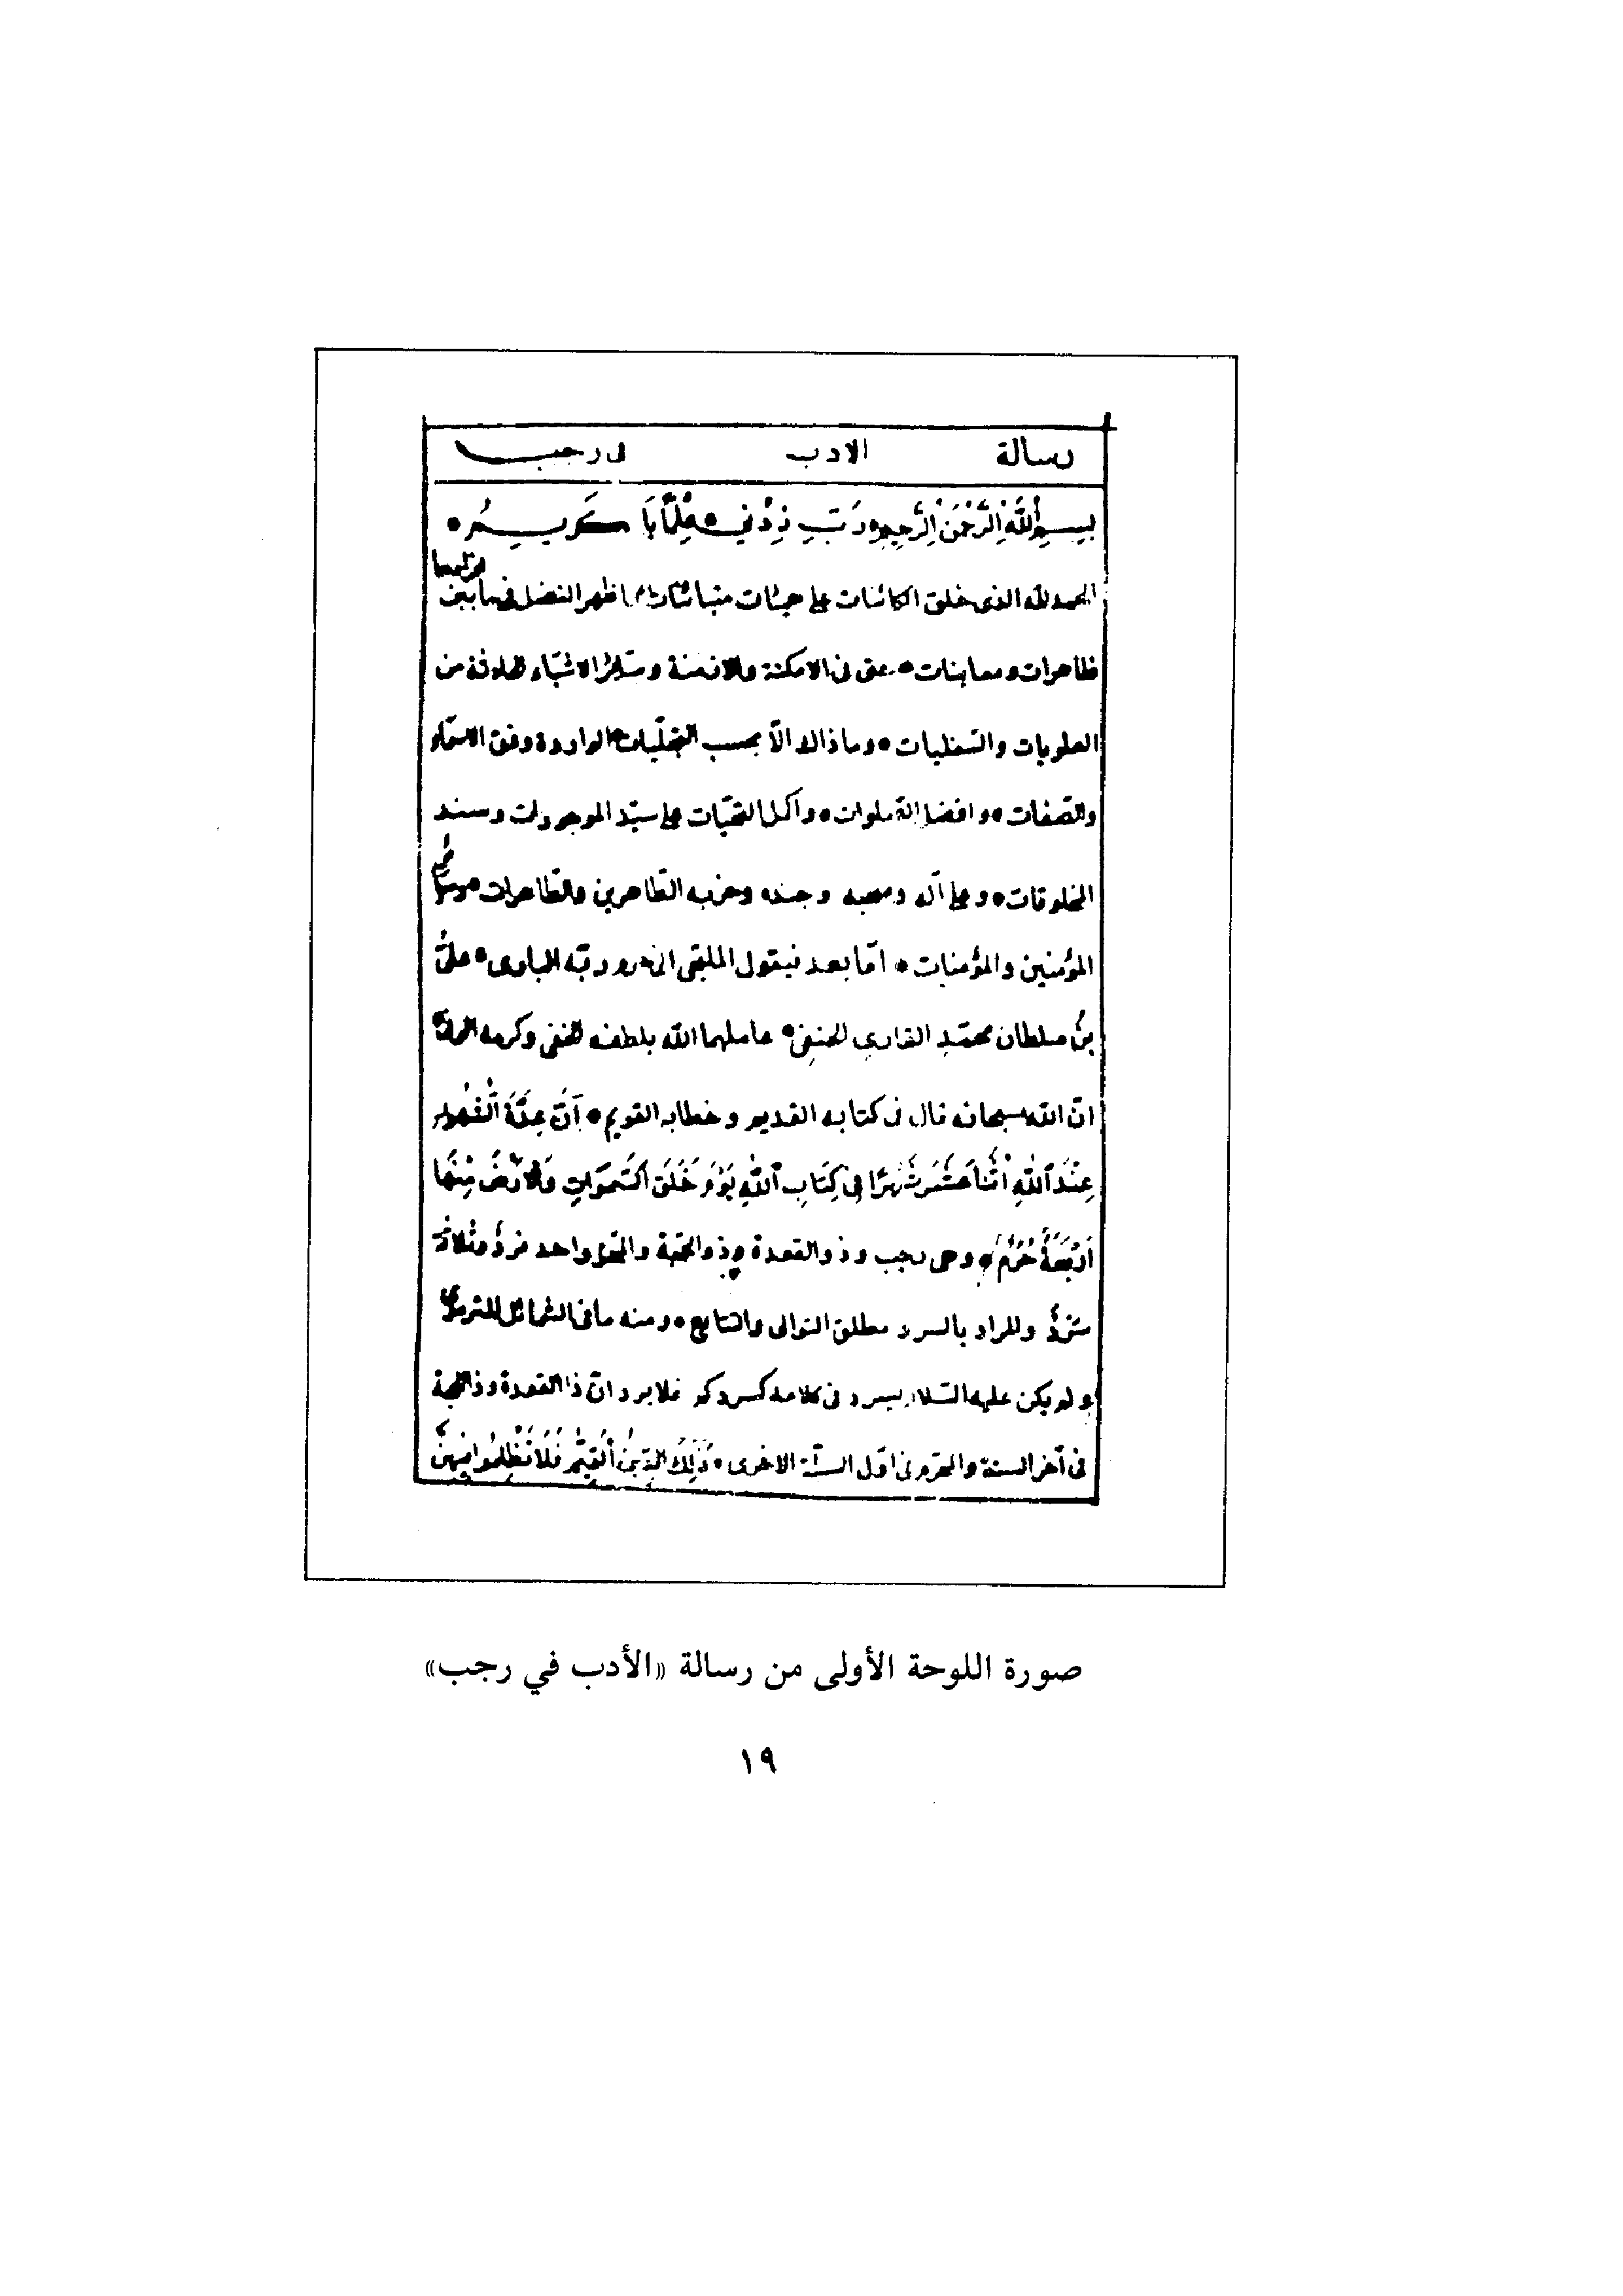 رسالة الادب فى رجب
بِسْمِ اللَّهِ الرَّحْمَنِ الرَّحِيمِ رَبِّ زِدْنِي عِلْمًا يَا كَرِيمُ
الحمد لله الذى خلق الكائنات على هيئات متباينات ظهر الفضل فيما بين
ظاهرات ومعاينات حتى فى الامكنة والازمنة وسائر الاشياء من
العلويات والسفليات وما ذاك الّا بحسب التجلّيات الواردة وفق الاسماء
والصّفات وافضل الصّلوات واكمل التحيّات على سيّد الموجودات وسند
المخلوقات وعلى آله وصحبه وجنده وحزبه الطّاهرين والطّاهرات
المؤمنين والمؤمنات امّا بعد فيقول الملتجى الى حرم ربّه البارى علىّ
بنُ سلطان محمّد القارى الحنفى عاملهما الله بلطفه الخفى وكرمه
انّ الله سبحانه قال فى كتابه القديم وخطابه القويم اِنَّ عِدَّةَ الشُّهُورِ
عِنْدَ اللَّهِ اثْنَا عَشَرَ شَهْرًا فِى كِتَابِ اللَّهِ يَوْمَ خَلَقَ السَّمَوَاتِ وَالْاَرْضَ مِنْهَا
اَرْبَعَةٌ حُرُمٌ وهى رجب وذو القعدة وذو الحجّة والمحرم واحد فردٌ وثلاثة
سَرْدٌ والمراد بالسرد مطلق التوالى والتتابع ومنه ما فى الشمائل للترمذى
ولم يكن عليه السّلام يسرد فى كلامه كسردكم فلا يرد انّ ذا القعدة وذا الحجة
فى آخر السنة والمحرّم فى اوّل السّنة الاخرى ذَلِكَ الدِّينُ الْقَيِّمُ فَلَا تَظْلِمُوا فِيهِنَّ
صورة اللوحة الأولى من رسالة «الأدب في رجب»
١٩